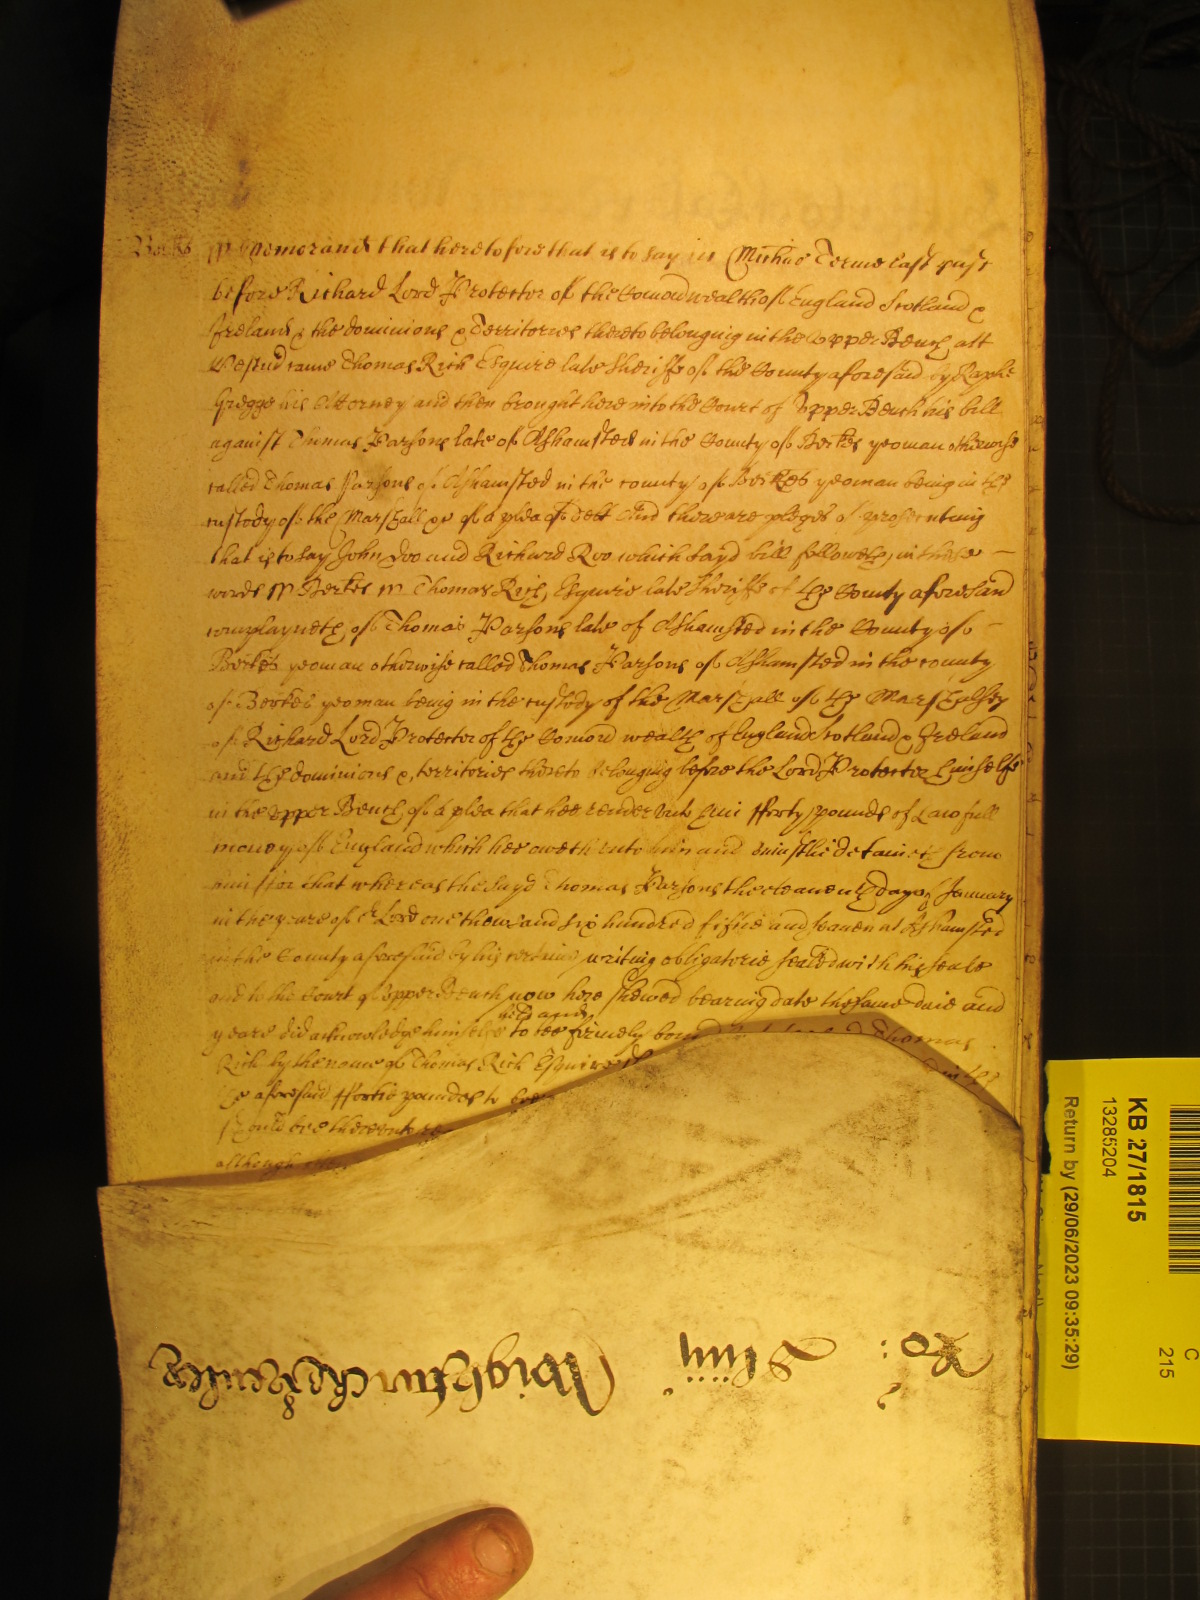 Berks ss Memorand that heretofore that is to say in Michas Terme last past
before Richard Lord Protector of the Comonwealth of England Scotland &
Ireland & the dominions & Territories thereto belonging in the upper Bench att
Westm̄ came Thomas Rich Esquire late Sheriffe of the County aforesaid by Raphe
Gregge his Attorney and then brought here into the Court of upper Bench his bill
against Thomas Parsons late of Ashamsted in the County of Berkes yeoman otherwise
called Thomas Parsons of Ashamsted in the county of Berkes yeoman being in the
custody of the Marshall &c of a plea of Debt And there are pleges of prosecuting
that is to say John Doo and Richard Roo which sayd bill followeth in these
words ss Berkes ss Thomas Rich Esquire late Sheriffe of the County aforesaid
complayneth of Thomas Parsons late of Ashamsted in the County of
Berkes yeoman otherwise called Thomas Parsons of Ashamsted in the county
of Berkes yeoman being in the custody of the Marshall of the Marshalsey
of Richard Lord Protector of the Comonwealth of England Scotland & Ireland
and the dominions & territories thereto belonging before the Lord Protector himselfe
in the upper Bench of a plea that hee render unto him fforty pounds of Lawfull
money of England which hee oweth unto him and uniustlie detaineth from
him ffor that whereas the sayd Thomas Parsons the eleaventh day of January
in the yeare of oʳ Lord one thousand six hundred fiftie and seaven at Ashamsted
in the County aforesaid by his certaine writing obligatorie sealed with his seale
and to the Court of upper Bench now here shewed bearing date the same daie and
yeare did acknowledge himselfe to bee held and firmely bound Thomas
Rich by the name of Thomas Rich Esquire
the aforesaid ffortie pounds to bee
should bee thereunto
although the
Ro:
KB 27/1815
13285204
Return by (29/06/2023 09:35:29)
C
215